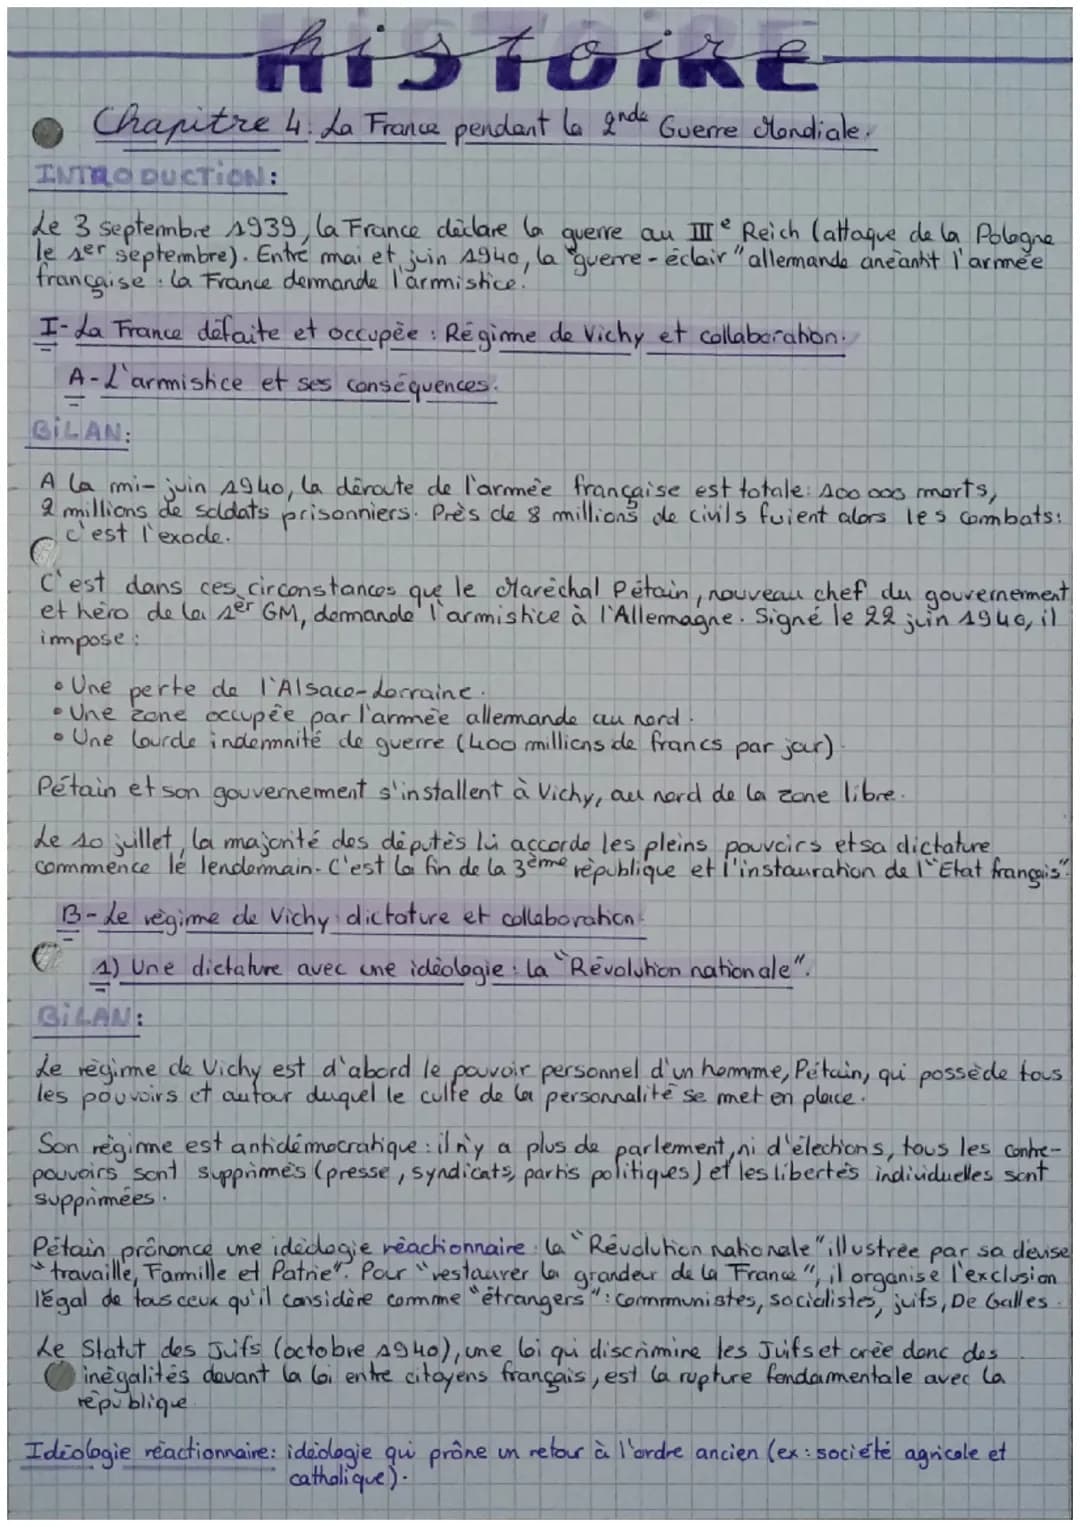 histoire
Chapitre 4: La France pendant la 2nde Guerre Mondiale.
INTRODUCTION:
Le 3 septembre 1939, la France déclare la guerre au IIIe Reich (attaque de la Pologne
le 1er septembre). Entre mai et juin 1940, la "guerre-éclair" allemande anéantit l'armée
française : la France demande l'armistice.
I- La France défaite et occupée : Régime de Vichy et collaboration.
A- L'armistice et ses conséquences.
BILAN:
A la mi-juin 1940, la déroute de l'armée française est totale: 100 000 morts,
2 millions de soldats prisonniers. Près de 8 millions de civils fuient alors les combats:
c'est l'exode.
C'est dans ces circonstances que le Maréchal Pétain, nouveau chef du gouvernement
et héro de la 1er GM, demande l'armistice à l'Allemagne. Signé le 22 juin 1940, il
impose :
• Une perte de l'Alsace-Lorraine.
• Une zone occupée par l'armée allemande au nord.
• Une lourde indemnité de guerre (400 millions de francs par jour).
Pétain et son gouvernement s'installent à Vichy, au nord de la zone libre.
Le 10 juillet, la majorité des députés lui accorde les pleins pouvoirs et sa dictature
commence le lendemain. C'est la fin de la 3ème république et l'instauration de l'"Etat français".
B- Le régime de Vichy : dictature et collaboration.
1) Une dictature avec une idéologie : la "Révolution nationale".
BILAN:
Le régime de Vichy est d'abord le pouvoir personnel d'un homme, Pétain, qui possède tous
les pouvoirs et autour duquel le culte de la personnalité se met en place.
Son régime est antidémocratique : il n'y a plus de parlement, ni d'élections, tous les contre-
pouvoirs sont supprimés (presse, syndicats, partis politiques) et les libertés individuelles sont
supprimées.
Pétain prônonce une idéologie réactionnaire : la "Révolution nationale" illustrée par sa devise
"travaille, Famille et Patrie". Pour "restaurer la grandeur de la France", il organise l'exclusion
légal de tous ceux qu'il considère comme "étrangers" : communistes, socialistes, juifs, De Galles.
Le Statut des Juifs (octobre 1940), une loi qui discrimine les Juifs et crée donc des
inégalités devant la loi entre citoyens français, est la rupture fondamentale avec la
république.
Idéologie réactionnaire: idéologie qui prône un retour à l'ordre ancien (ex : société agricole et
catholique).